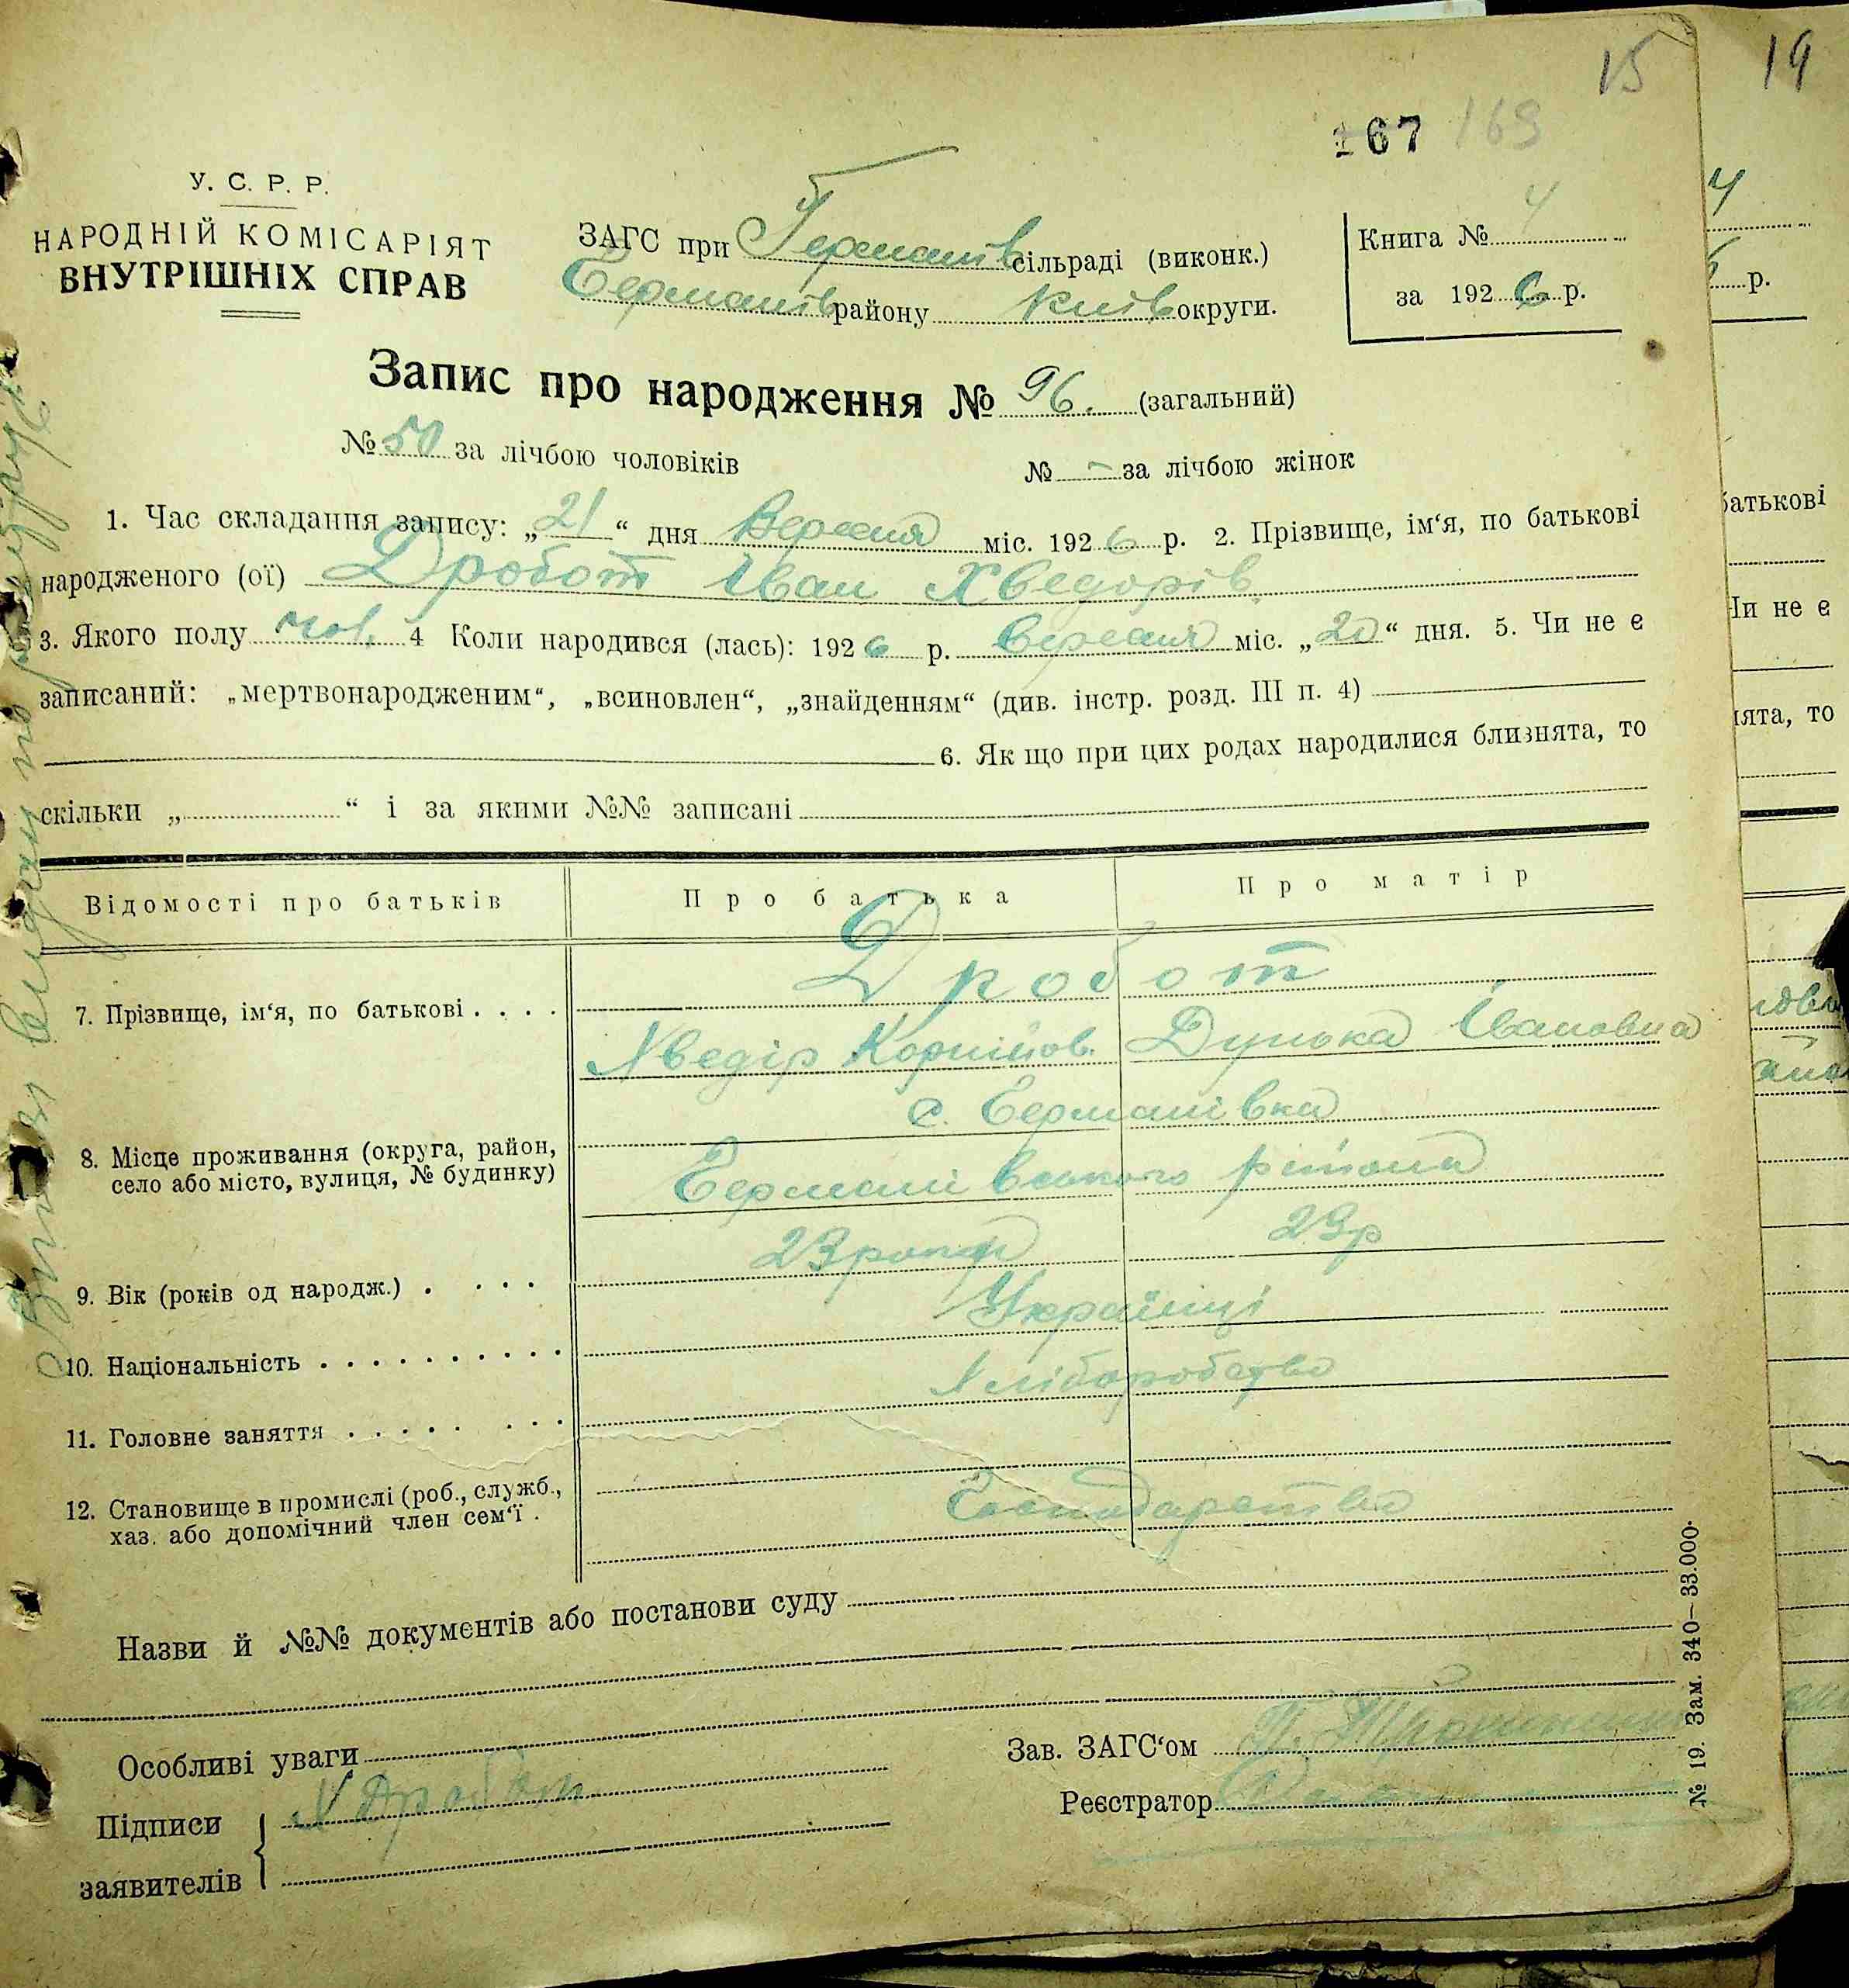 15
19
167 169
У. С. Р. Р.
НАРОДНІЙ КОМІСАРІЯТ
ВНУТРІШНІХ СПРАВ
ЗАГС при Германів сільраді (виконк.)
Германів району Київ округи.
Книга № 4
за 1926 р.
4
р.
Запис про народження № 96. (загальний)
№ 50 за лічбою чоловіків
№ - за лічбою жінок
1. Час складання запису: „21“ дня Вересня міс. 1926 р. 2. Прізвище, ім‘я, по батькові
народженого (ої) Дробот Іван Хведорів
3. Якого полу чол. 4 Коли народився (лась): 1926 р. Вересня міс. „20“ дня. 5. Чи не є
записаний: „мертвонародженим“, „всиновлен“, „знайденням“ (див. інстр. розд. III п. 4)
6. Як що при цих родах народилися близнята, то
скільки „ “ і за якими №№ записані
батькові
Чи не є
ята, то
Відомості про батьків
Про батька
Про матір
7. Прізвище, ім‘я, по батькові . . . .
Дробот
Хведір Корнійов.
Дунька Івановна
8. Місце проживання (округа, район,
село або місто, вулиця, № будинку)
с. Германівка
Германівського району
9. Вік (років од народж.) . . . .
23 роки
23р
10. Національність . . . . . . . . . .
Українці
11. Головне заняття . . . . . . . .
Хліборобство
12. Становище в промислі (роб., служб.,
хаз. або допомічний член сем‘ї .
Господарство
Назви й №№ документів або постанови суду
Особливі уваги
Підписи
заявителів
Х Дробот
Зав. ЗАГС‘ом
Реєстратор
№ 19. Зам. 340—33.000.